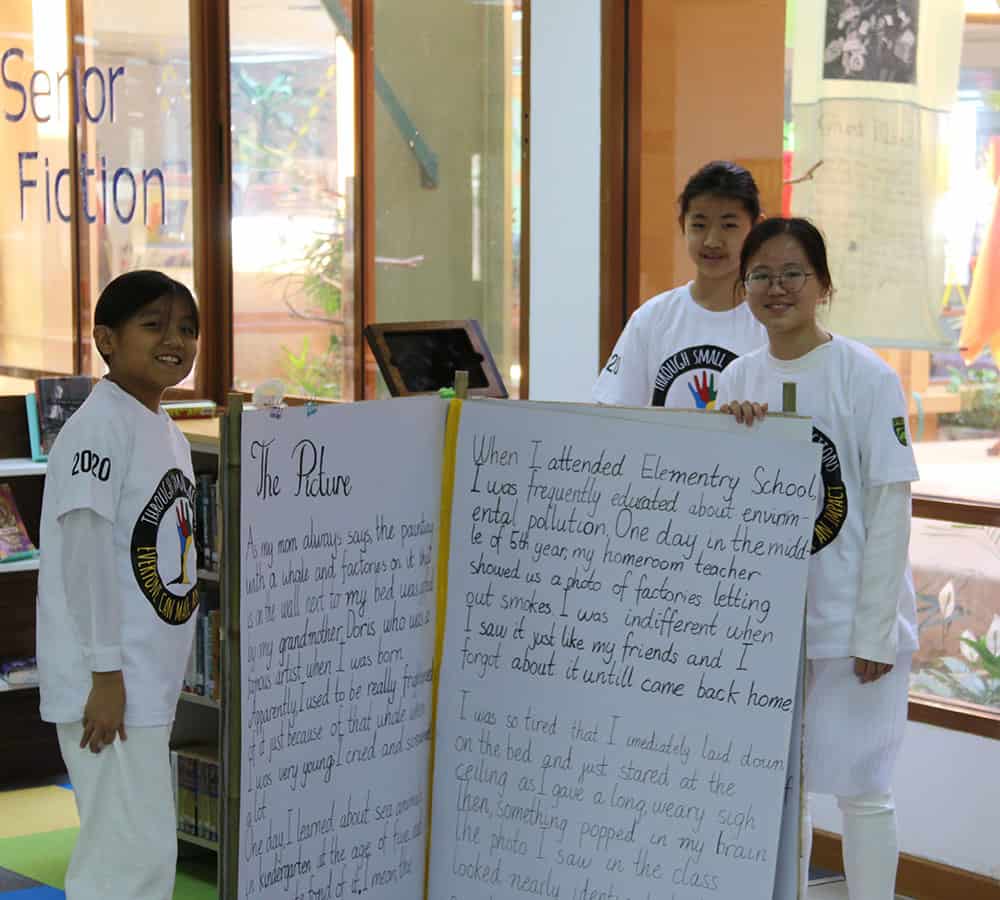 Senior
Fiction
2020
THROUGH SMALL
EVERYONE CAN MAKE AN
20
THROUGH SMALL
AN IMPACT
The Picture
As my mom always says, the painting
with a whale and factories on it that
is on the wall next to my bed was
by my grandmother, Doris who was a
famous artist when I was born
Apparently, I used to be really frightened
of it just because of that whale when
I was very young. I cried and screamed
a lot
One day, I learned about sea animals
in kindergarten at the age of five, and
fond of it, I mean, the
When I attended Elementry School,
I was frequently educated about environm-
ental pollution. One day, in the midd-
le of 5th year, my homeroom teacher
showed us a photo of factories letting
out smokes. I was indifferent when
I saw it just like my friends and I
forgot about it untill came back home
I was so tired that I imediately laid down
on the bed and just stared at the
ceiling as I gave a long, weary sigh
Then, something popped in my brain
the photo I saw in the class
looked nearly